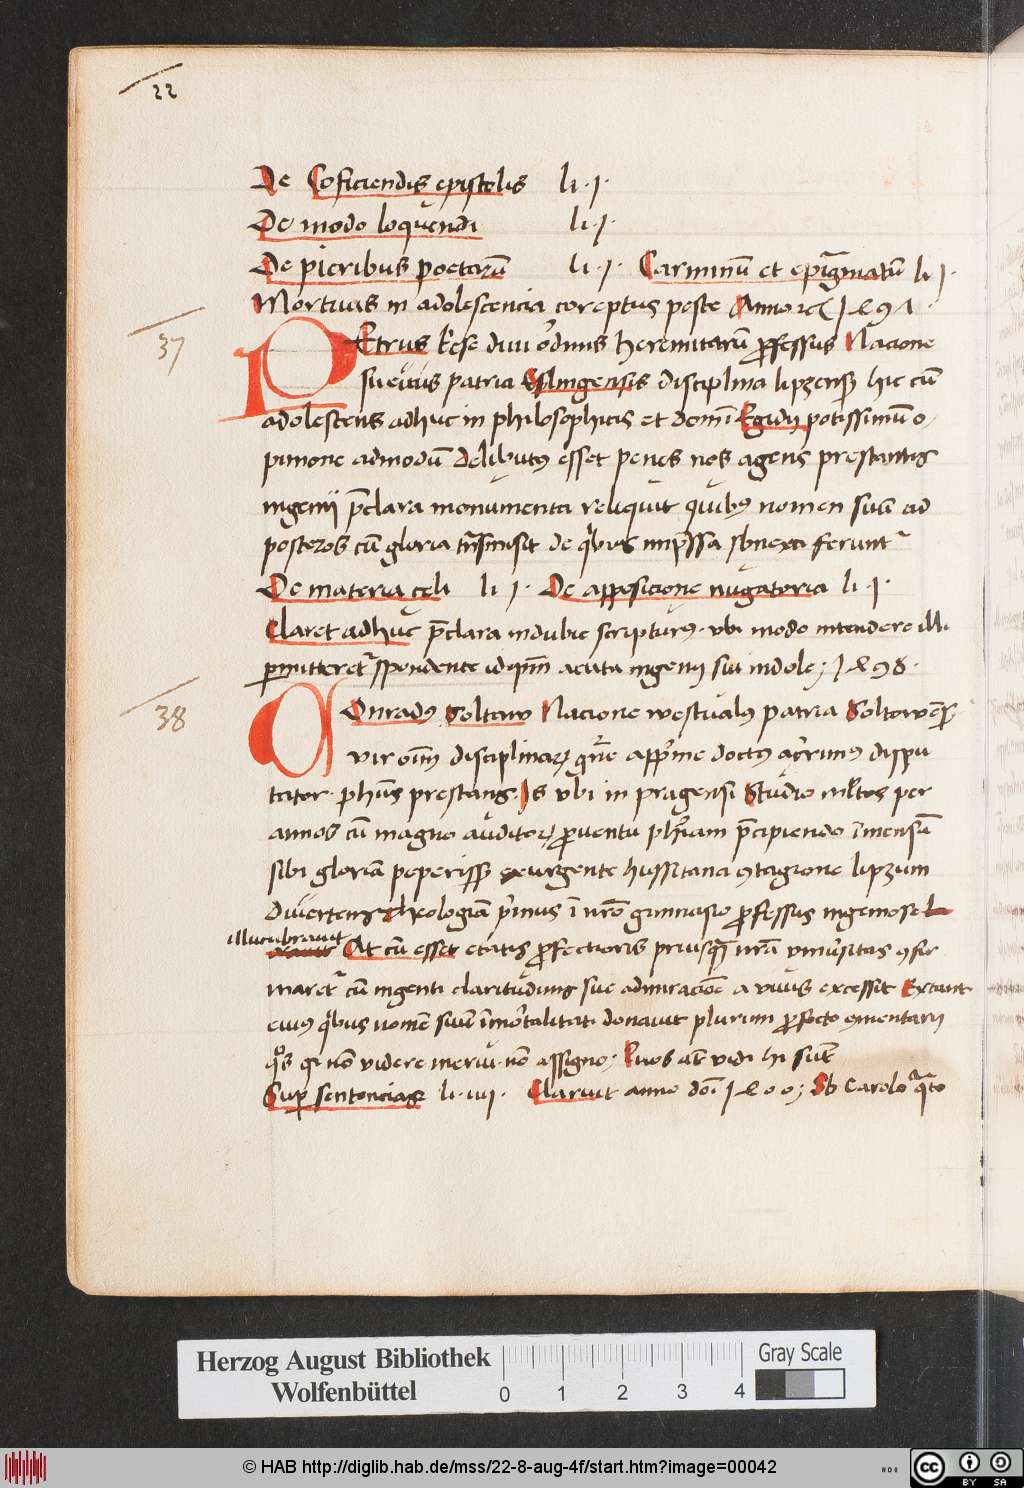 22
De Cõficiendis epistolis li · 1 ·
De modo loquendi li · 1 ·
De pieribus poetarũ li · 1 · Carminũ et epigrãmatũ li 1 ·
Mortuus in adolescencia coreptus peste Anno
37
PEtrus Kese diui ordinis heremitarũ professus Nacione
sueuus patria Eslingensis disciplina lipzensis hic cũ
adolescens adhuc in philosophicis et domi Egidij potissimũ o
pinione admodũ delibutus esset penes nos agens prestantis
ingenij p̃clara monumenta reliquit quibus nomen suũ ad
posteros cũ gloria trãsmisit de quibus impressa feruntur
De materia celi li 1 · De apposicione nugatoria li · 1 ·
Claret adhuc p̃clara indubie scripturus · vbi modo intendere illi
permitteretur spondente acuta ingenij sui indole
38
COnradus Soltaw Nacione westualus patria Soltowensis
vir oim̃ disciplinarum apprime doctus acrimus dispu
tator · phũs prestans · Is vbi in pragensi Studio multos per
annos cũ magno auditorum prouentu phĩam p̃cipiendo ĩmensũ
sibi gloriã peperisset exurgente hussitana contagione lipzum
diuertens theologiã primus ĩ nr̃o gimnasio professus ingeniose
illucubrauit At cũ esset etatis prouectioris priusquã nr̃a vniuersitas confir
maretur cũ ingenti claritudinis sue admiracione a viuis excessit Extant
eius quibus nomẽ suũ ĩmortalitati donauit plurimi profecto comentarij
quos qi nõ videre merui · nõ assigno; Quos aũt vidi hi sũt
Super sentencias li · iiij · Claruit anno doi 1400; Sb Carolo quarto
Herzog August Bibliothek
Wolfenbüttel
0 1 2 3 4
Gray Scale
© HAB http://diglib.hab.de/mss/22-8-aug-4f/start.htm?image=00042
cc BY SA